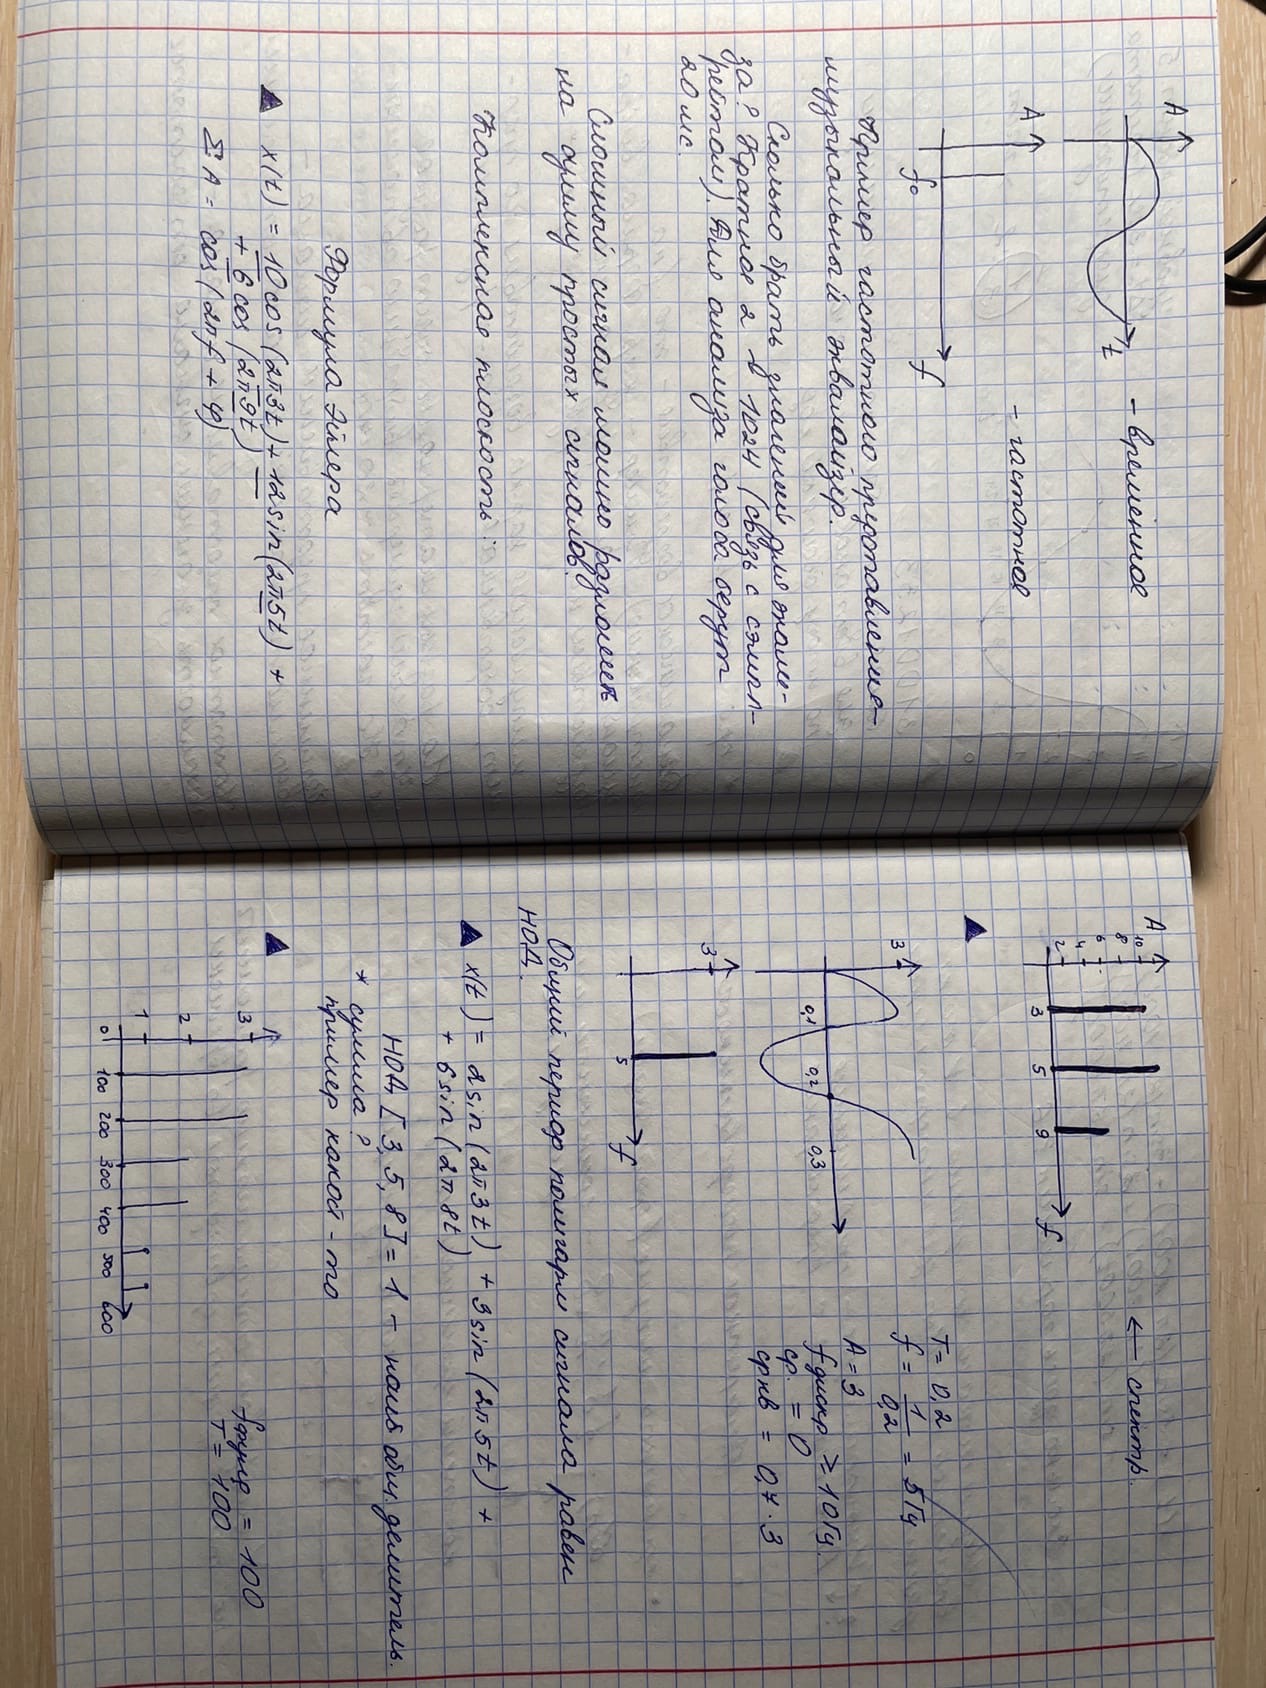 A
t
- временное
A
- частотное
f₀
f
Пример частотного представления-
музыкальный эквалайзер.
Сколько брать значений для анали-
за? Кратное 2 - 1024 (связь с сэмпл-
рейтом). Для анализа голоса берут
20 мс.
Сложный сигнал можно разложить
на сумму простых сигналов.
Комплексная плоскость:
Формула Эйлера
x(t) = 10cos(2π3t) + 12sin(2π5t) +
+ 6cos(2π9t)
ΣA = cos(2πf + φ)
A
10
8
6
4
2
3 5 9
f
← спектр.
3
0,1 0,2 0,3
T = 0,2
f = 1/0,2 = 5Гц
A = 3
fдискр ≥ 10Гц.
ср. = 0
ср кв = 0,7 · 3
3
5
f
Общий период полигарм сигнала равен
НОД.
x(t) = 2sin(2π3t) + 3sin(2π5t) +
+ 6sin(2π8t)
НОД [3, 5, 8] = 1 - наиб общ. делитель.
* сумма?
пример какой-то
3
2
1
0 100 200 300 400 500 600
fфунд = 100
T = 100